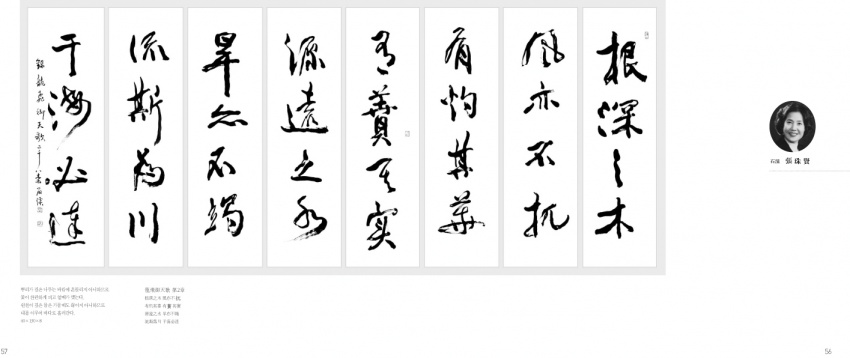 根深之木
風亦不扤
有灼其華
有蕡其實
源遠之水
旱亦不竭
流斯爲川
于海必達
錄龍飛御天歌
張珠賢
뿌리가 깊은 나무는 바람에 흔들리지 아니하므로
꽃이 찬란하게 피고 열매가 많도다.
샘물이 깊은 물은 가뭄에도 끊이지 아니하므로
내를 이루어 바다로 흘러간다.
龍飛御天歌 第2章
根深之木 風亦不扤
有灼其華 有蕡其實
源遠之水 旱亦不竭
流斯爲川 于海必達
57
56